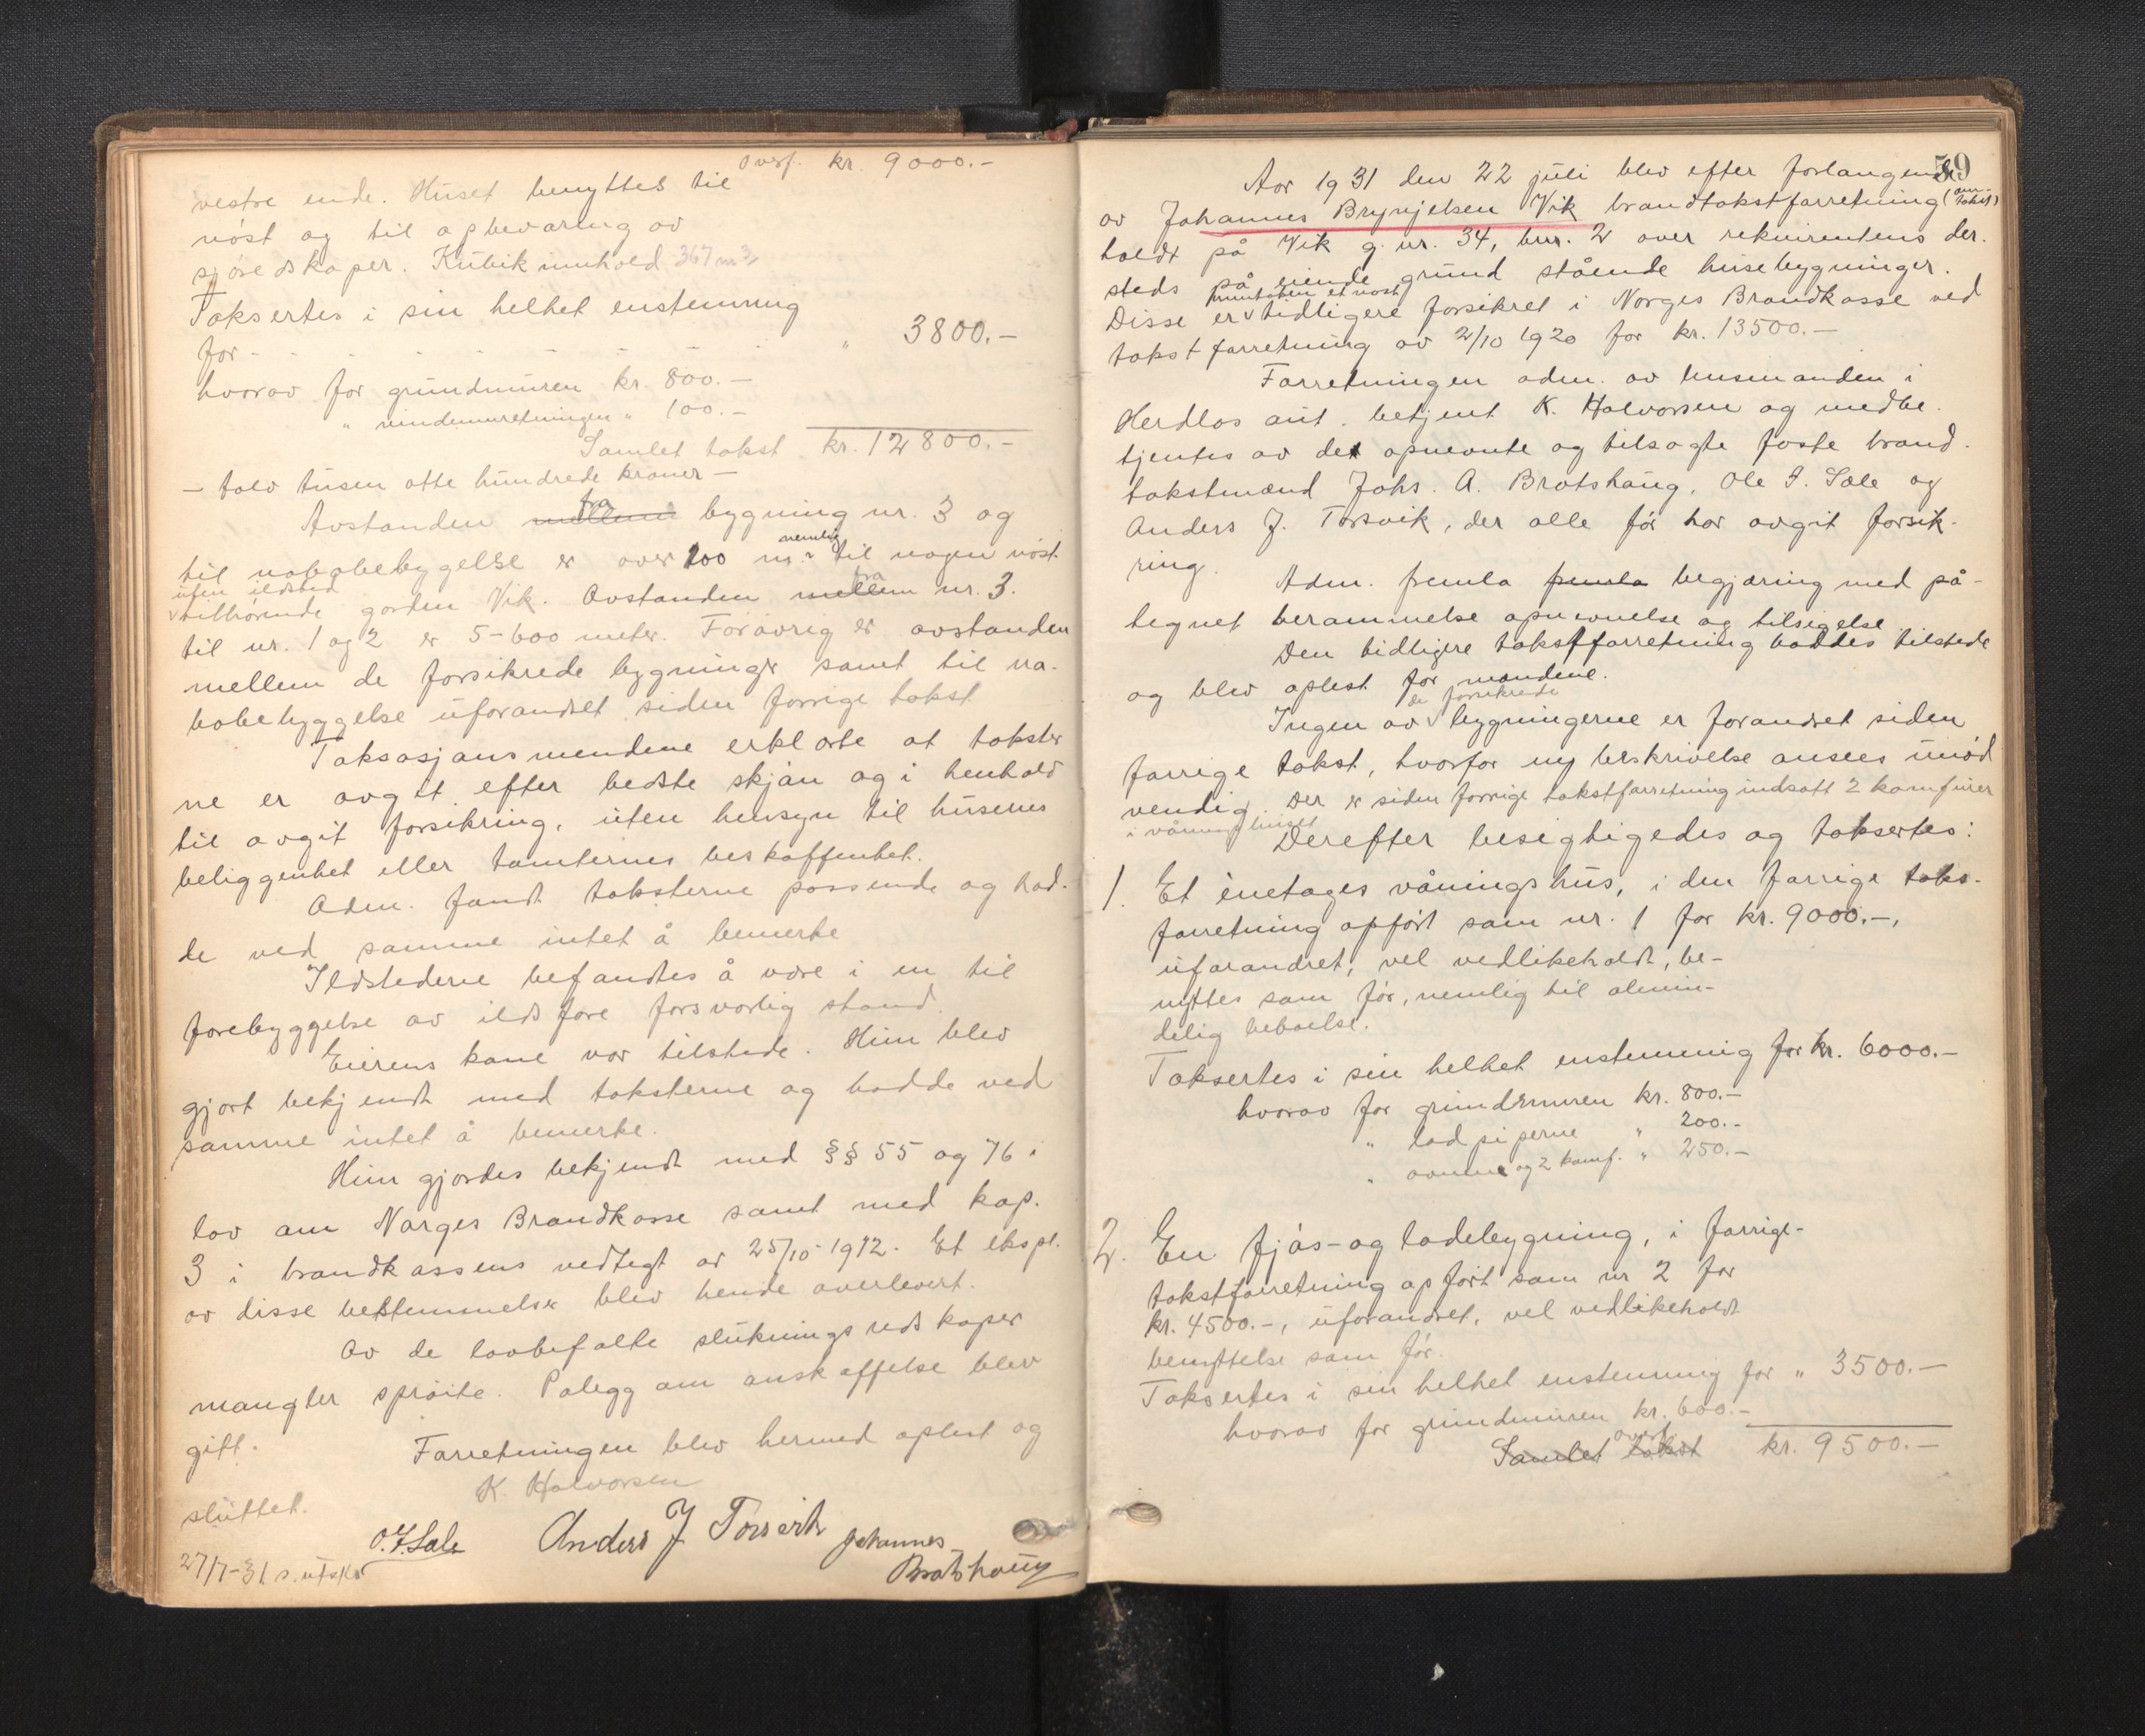 Overf. kr. 9000.-
vestre ende. Huset benyttes til
nöst og til opbevaring av
sjöredskaper. Kubikinnhold 367 m3
Taksertes i sin helhet enstemmig
for - - - - - - - " 3800.-
hvorav for grundmuren kr. 800.-
" vindeinnretningen " 100.-
Samlet takst kr. 12800.-
- tolv tusen otte hundrede kroner -
Avstanden mellem fra bygning nr. 3 og
til nabobebygelse er over 100 m. nemlig til nogen nöst
uten ildsted
tilhörende garden Vik. Avstanden mellem fra nr. 3.
til nr. 1 og 2 er 5-600 meter. Foravrig er avstanden
mellem de forsikrede bygninger samt til na-
bobebyggelse uforandret siden forrige takst
Taksasjonsmendene erklærte at takster
ne er avgit efter bedste skjön og i henhold
til avgit forsikring, uten hensyn til husenes
beliggenhet eller tomternes beskaffenhet.
Adm. fandt taksterne passende og had-
de ved samme intet å bemerke
Ildstederne befandtes å være i en til
forebyggelse av ildsfare forsvarlig stand.
Eierens kone var tilstede. Hun blev
gjort bekjendt med taksterne og hadde ved
samme intet å bemerke.
Hun gjordes bekjendt med §§ 55 og 76 i
lov om Norges Brandkasse samt med kap.
3 i brandkassens vedtegt av 25/10-1912. Et ekspl.
av disse bestemmelser blev hende overlevert.
Av de lovbefalte slukningsredskaper
mangler spröite. Palegg om anskaffelse blev
gitt.
Forretningen blev hermed oplest og
sluttet.
K. Halvorsen
O. J. Sale Anders J Torsvik Johannes
Brotshaug
27/7-31. s. utskr
59
Aar 1931 den 22 juli blev efter forlangende
av Johannes Brynjelsen Vik brandtakstforretning (om-
takst)
holdt på Vik g. nr. 34, bnr. 2 over rekvirentens der-
steds på eiende grund stående husebygninger.
undtaken et nöst
Disse er tidligere forsikret i Norges Brandkasse ved
takstforretning av 2/10 1920 for kr. 13500.-
Forretningen adm. av lensmanden i
Herdlas aut. betjent K. Halvorsen og medbe-
tjentes av de opnevnte og tilsagte faste brand-
takstmænd Johs. A. Brotshaug, Ole J. Sale og
Anders J. Torsvik, der alle för har avgit forsik-
ring.
Adm. fremla fremla begjæring med på-
tegnet berammelse opnevnelse og tilsigelse.
Den tidligere takstforretning havdes tilstede
og blev oplest for mændene.
de forsikrede
Ingen av bygningerne er forandret siden
forrige takst, hvorfor ny beskrivelse ansees unöd
vendig. Der er siden forrige takstforretning indsatt 2 komfurer
i våningshuset
Derefter besigtigedes og taksertes:
1. Et enetages våningshus, i den forrige taks-
forretning opfört som nr. 1 for kr. 9000.-,
uforandret, vel vedlikeholdt, be-
nyttes som för, nemlig til almin-
delig beboelse.
Taksertes i sin helhet enstemmig for kr. 6000.-
hvorav for grundmuren kr. 800.-
" lodpiperne " 200.-
" ovnene og 2 komf. " 250.-
2. En fjös- og ladebygning, i forrige-
takstforretning opfört som nr 2 for
kr. 4500.-, uforandret, vel vedlikeholdt
benyttelse som för.
Taksertes i sin helhet enstemmig for " 3500.-
hvorav for grundmuren kr. 600.-
Samlet takst overf. kr. 9500.-